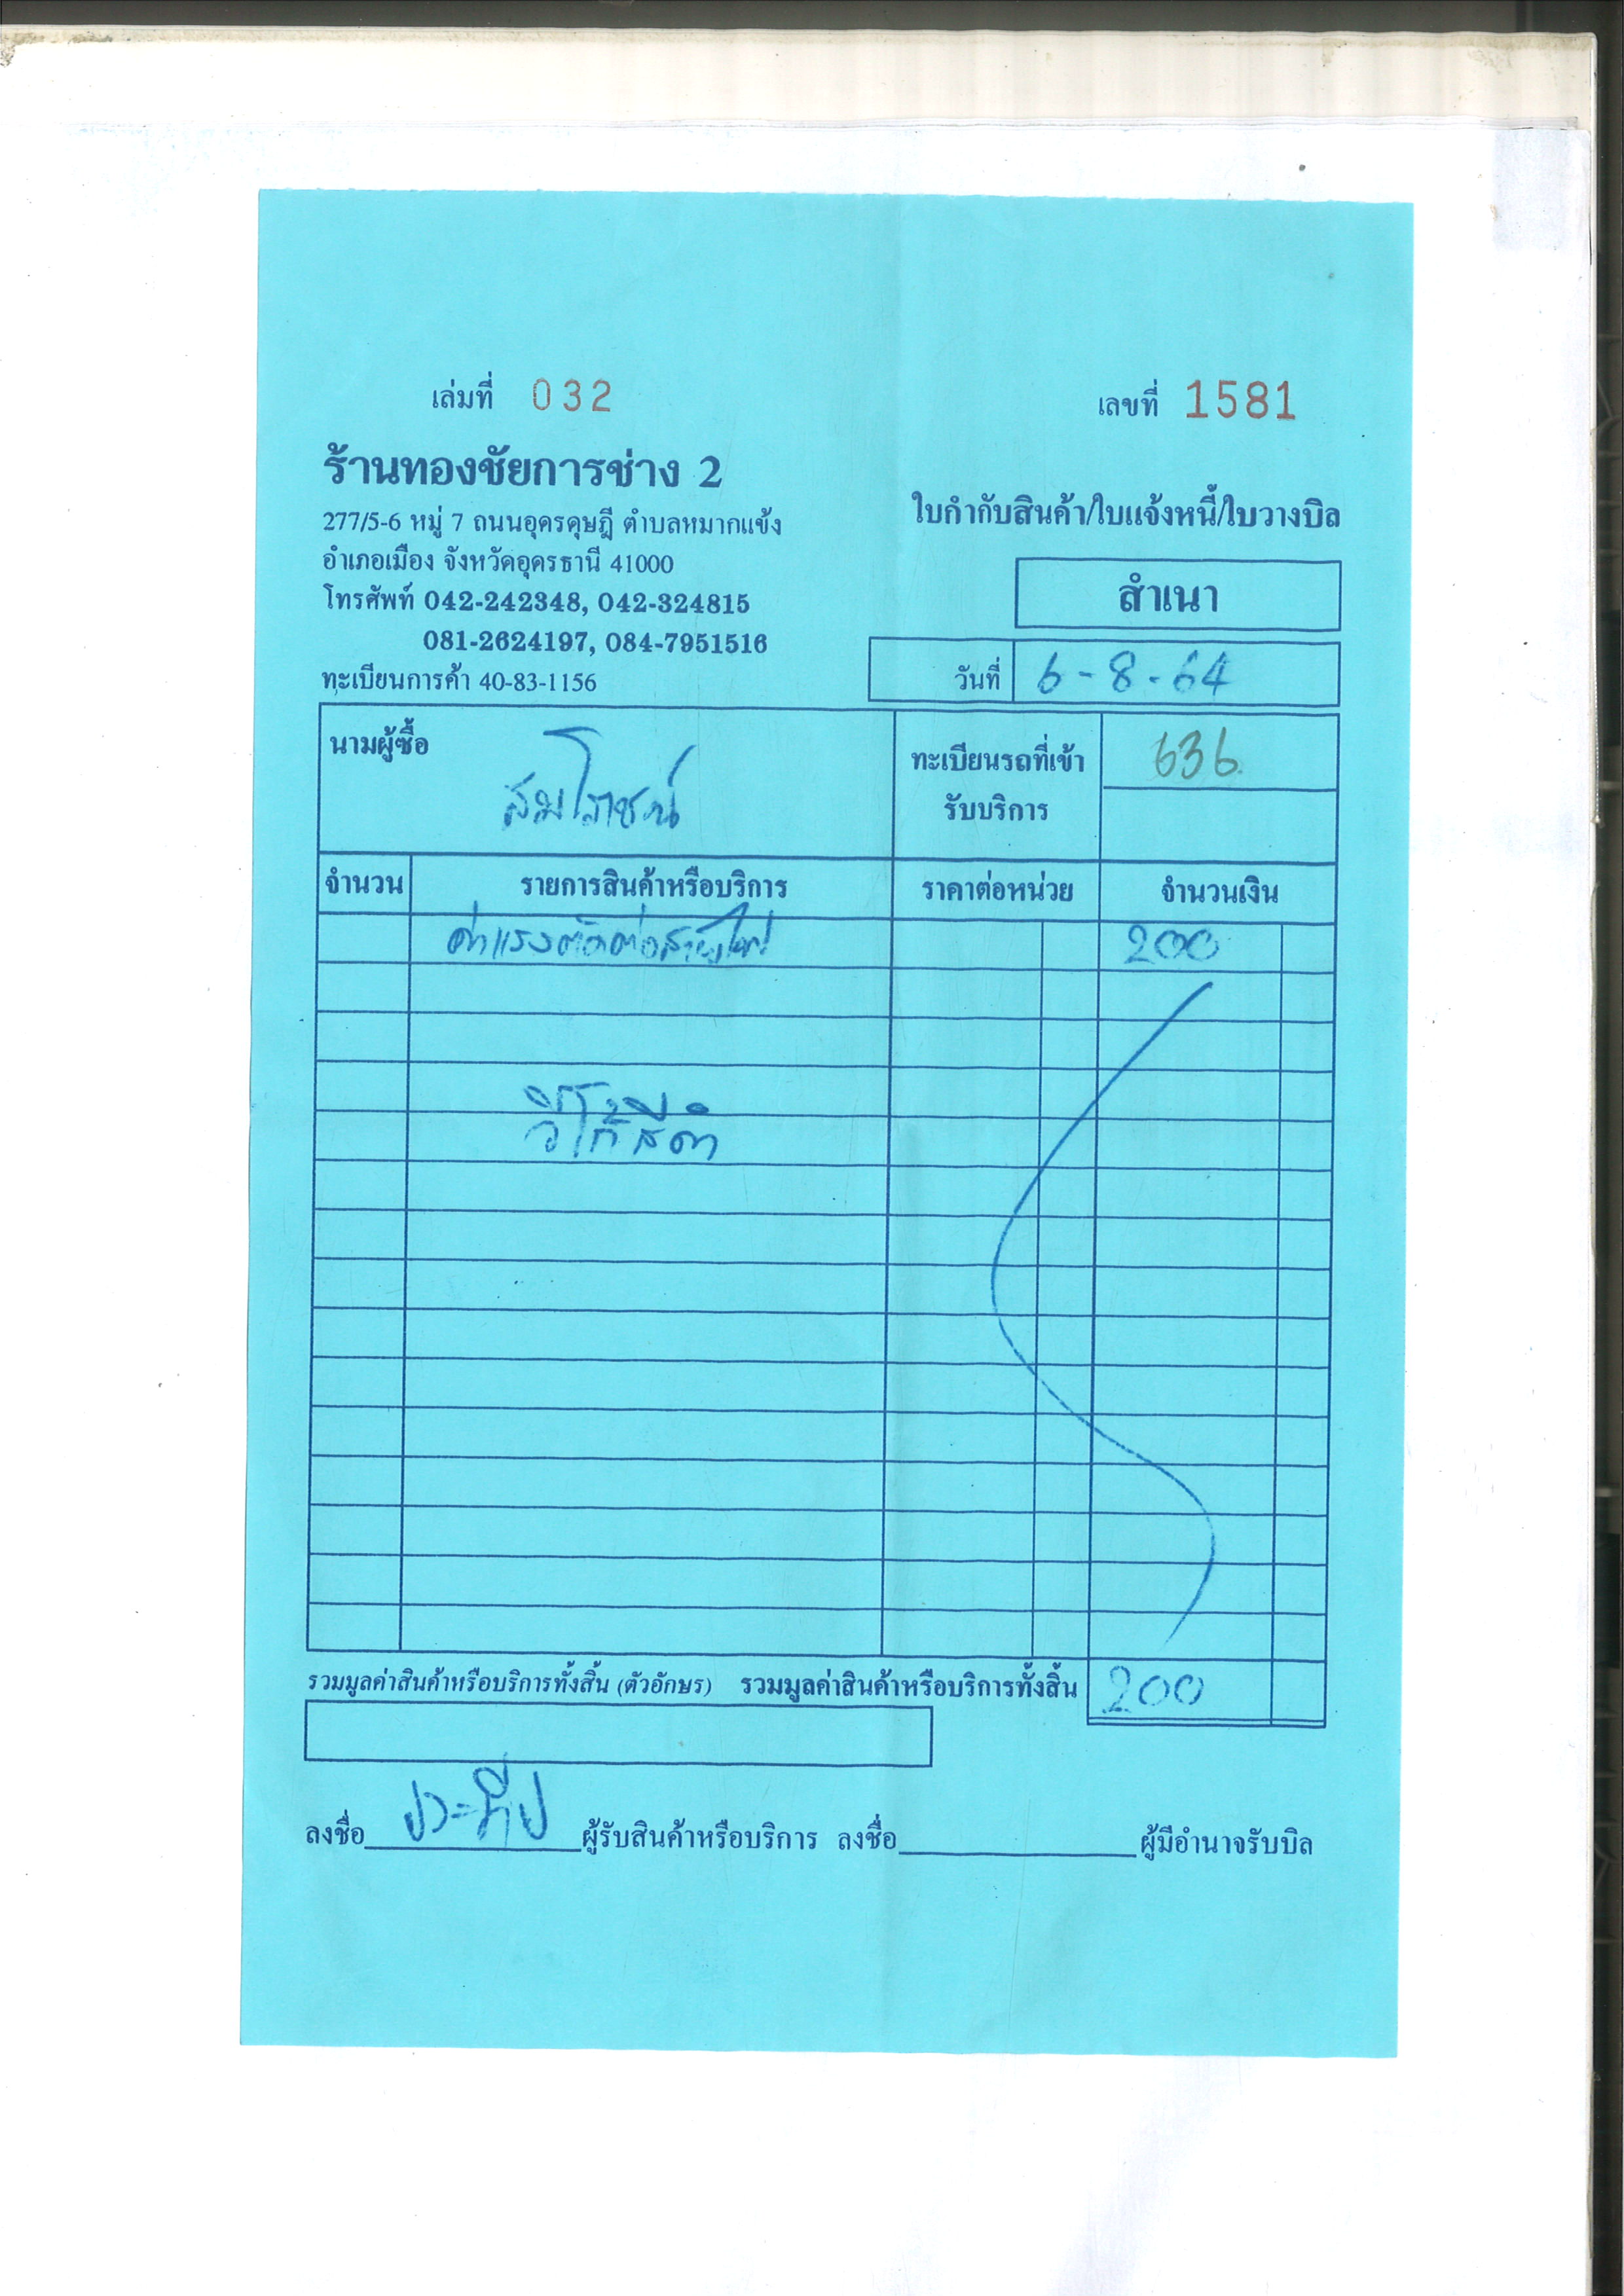 เล่มที่ 032
เลขที่ 1581
ร้านทองชัยการช่าง 2
277/5-6 หมู่ 7 ถนนอุดรดุษฎี ตำบลหมากแข้ง
อำเภอเมือง จังหวัดอุดรธานี 41000
โทรศัพท์ 042-242348, 042-324815
081-2624197, 084-7951516
ทะเบียนการค้า 40-83-1156
ใบกำกับสินค้า/ใบแจ้งหนี้/ใบวางบิล
สำเนา
วันที่ 6-8-64
นามผู้ซื้อ
ทะเบียนรถที่เข้า 636
รับบริการ
จำนวน รายการสินค้าหรือบริการ ราคาต่อหน่วย จำนวนเงิน
ค่าแรงตัดต่อสายไฟ 200
วีโก้สีดำ
รวมมูลค่าสินค้าหรือบริการทั้งสิ้น (ตัวอักษร) รวมมูลค่าสินค้าหรือบริการทั้งสิ้น 200
ลงชื่อ ประทีป ผู้รับสินค้าหรือบริการ ลงชื่อ ผู้มีอำนาจรับบิล